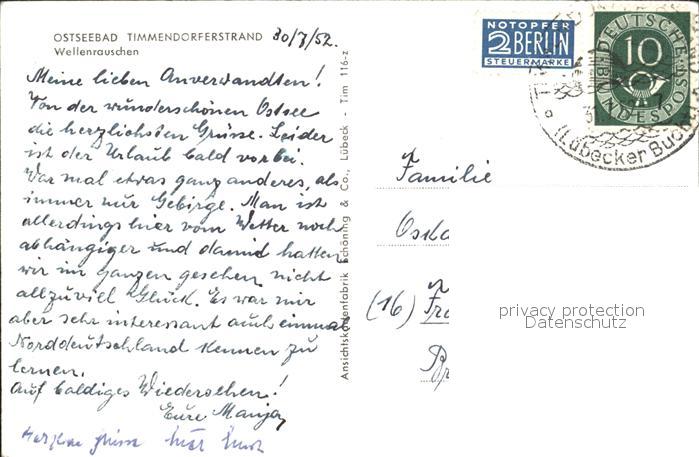 OSTSEEBAD TIMMENDORFERSTRAND 30/7/52.
Wellenrauschen
Meine lieben Anverwandten!
Von der wunderschönen Ostsee
die herzlichsten Grüsse. Leider
ist der Urlaub bald vorbei.
War mal etwas ganz anderes, als
immer nur Gebirge. Man ist
allerdings hier vom Wetter noch
abhängiger und damid hatten
wir im ganzen gesehen nicht
allzuviel Glück. Es war mir
aber sehr interessant auch einmal
Norddeutschland kennen zu
lernen.
Auf baldiges Wiedersehen!
Eure
Ansichtskartenfabrik Schöning & Co., Lübeck - Tim 116-z
NOTOPFER
2 BERLIN
STEUERMARKE
DEUTSCHE
10
BUNDESPOST
(Lübecker Bucht)
Familie
Oska
(16) Fra
privacy protection
Datenschutz